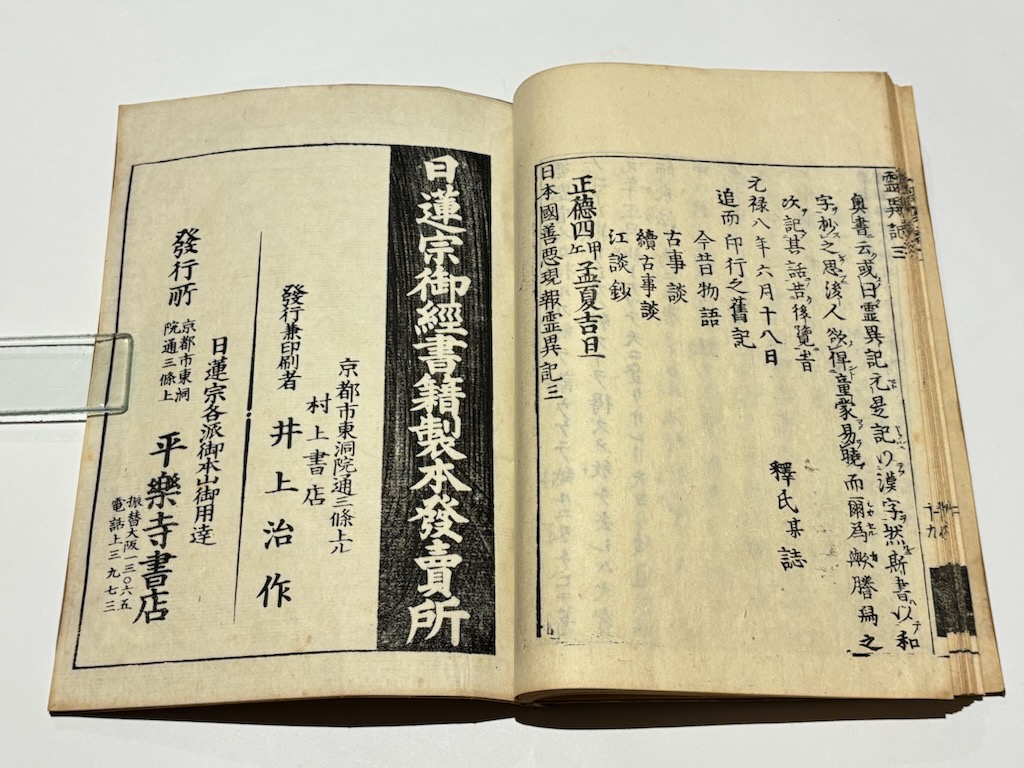 霊異記三
奥書云或曰霊異記元是記以漢字然斯書以和
字抄之思浚人欲俾童蒙易暁而爾為歟謄写之
次記其話告後覧者
元禄八年六月十八日 釋氏某誌
追而印行之舊記
今昔物語
古事談
續古事談
江談鈔
正德四甲午孟夏吉旦
日本國善惡現報霊異記三
日蓮宗御經書籍製本發賣所
京都市東洞院通三條上ル
村上書店
發行兼印刷者 井上治作
日蓮宗各派御本山御用達
發行所 京都市東洞院通三條上 平樂寺書店
振替大阪一三〇六五
電話上三九七三